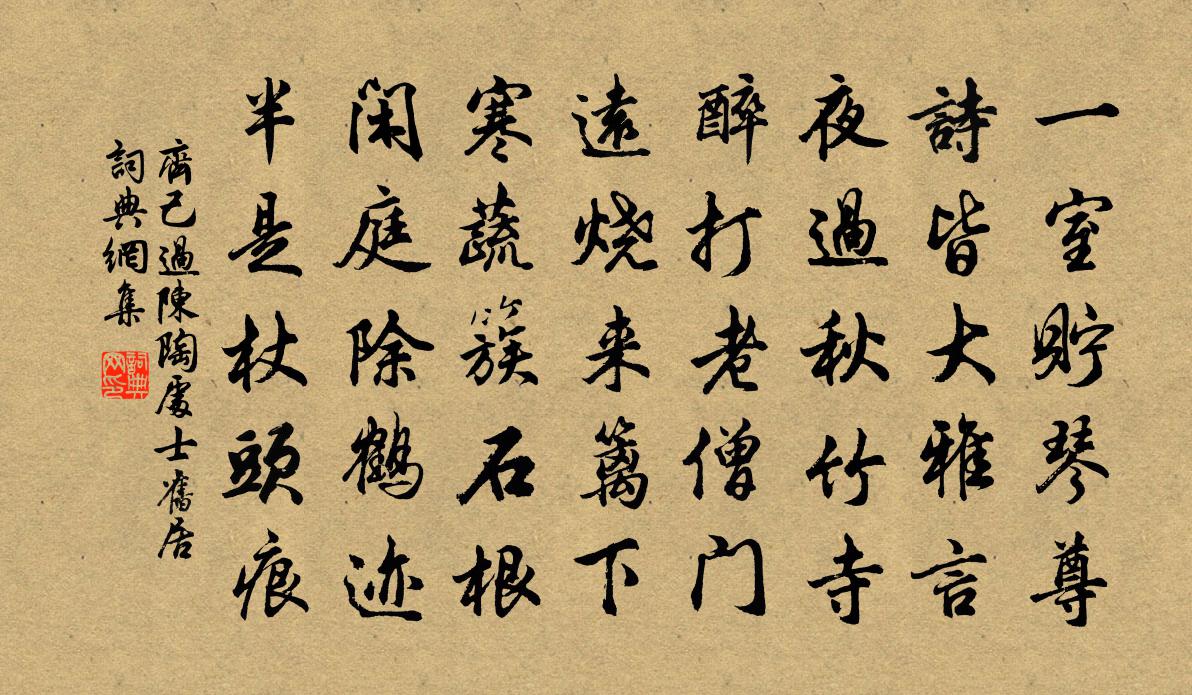 一室貯琴尊
詩皆大雅言
夜過秋竹寺
醉打老僧門
遠燒来籬下
寒蔬簇石根
閑庭除鶴迹
半是杖頭痕
齊己過陳陶處士舊居
詞典網集
詞典网印